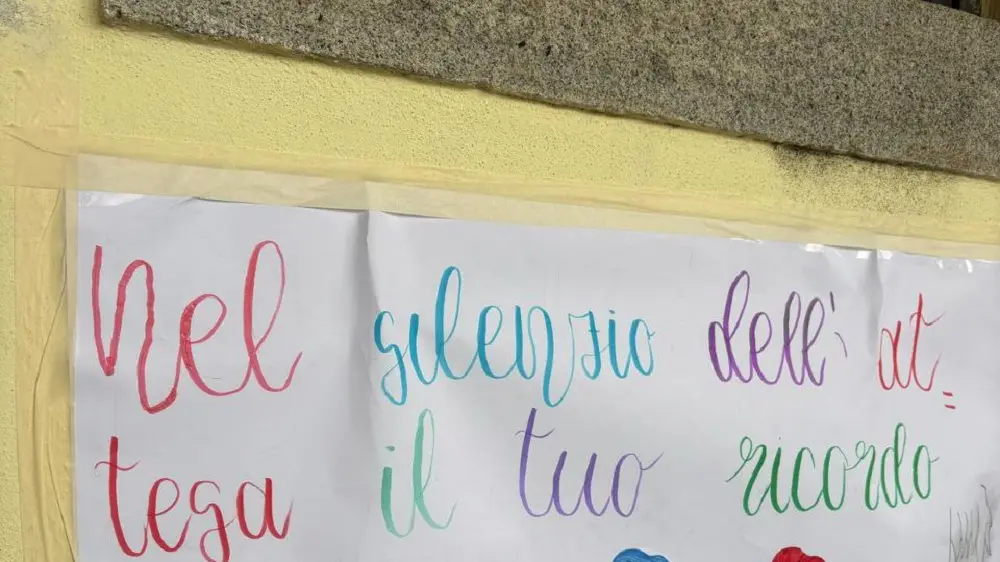 Nel silenzio dell' at=
tega il tuo ricordo